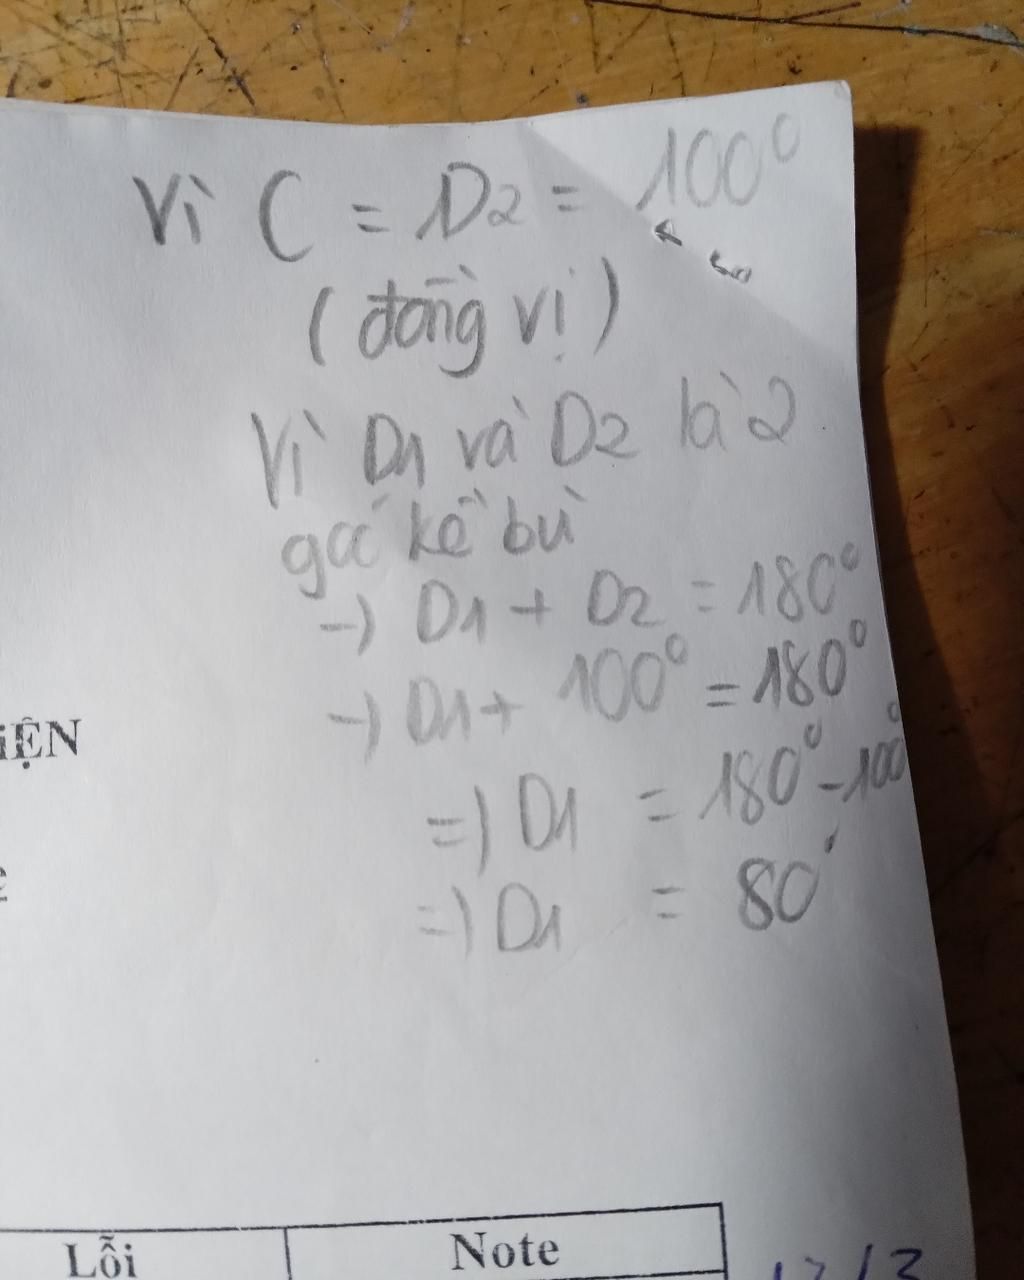 Vì C = D2 = 100°
(đồng vị)
Vì D1 và D2 là 2
góc kề bù
→) D1 + D2 = 180°
→) D1 + 100° = 180°
=) D1 = 180° - 100°
=) D1 = 80°
iỆN
Lỗi
Note